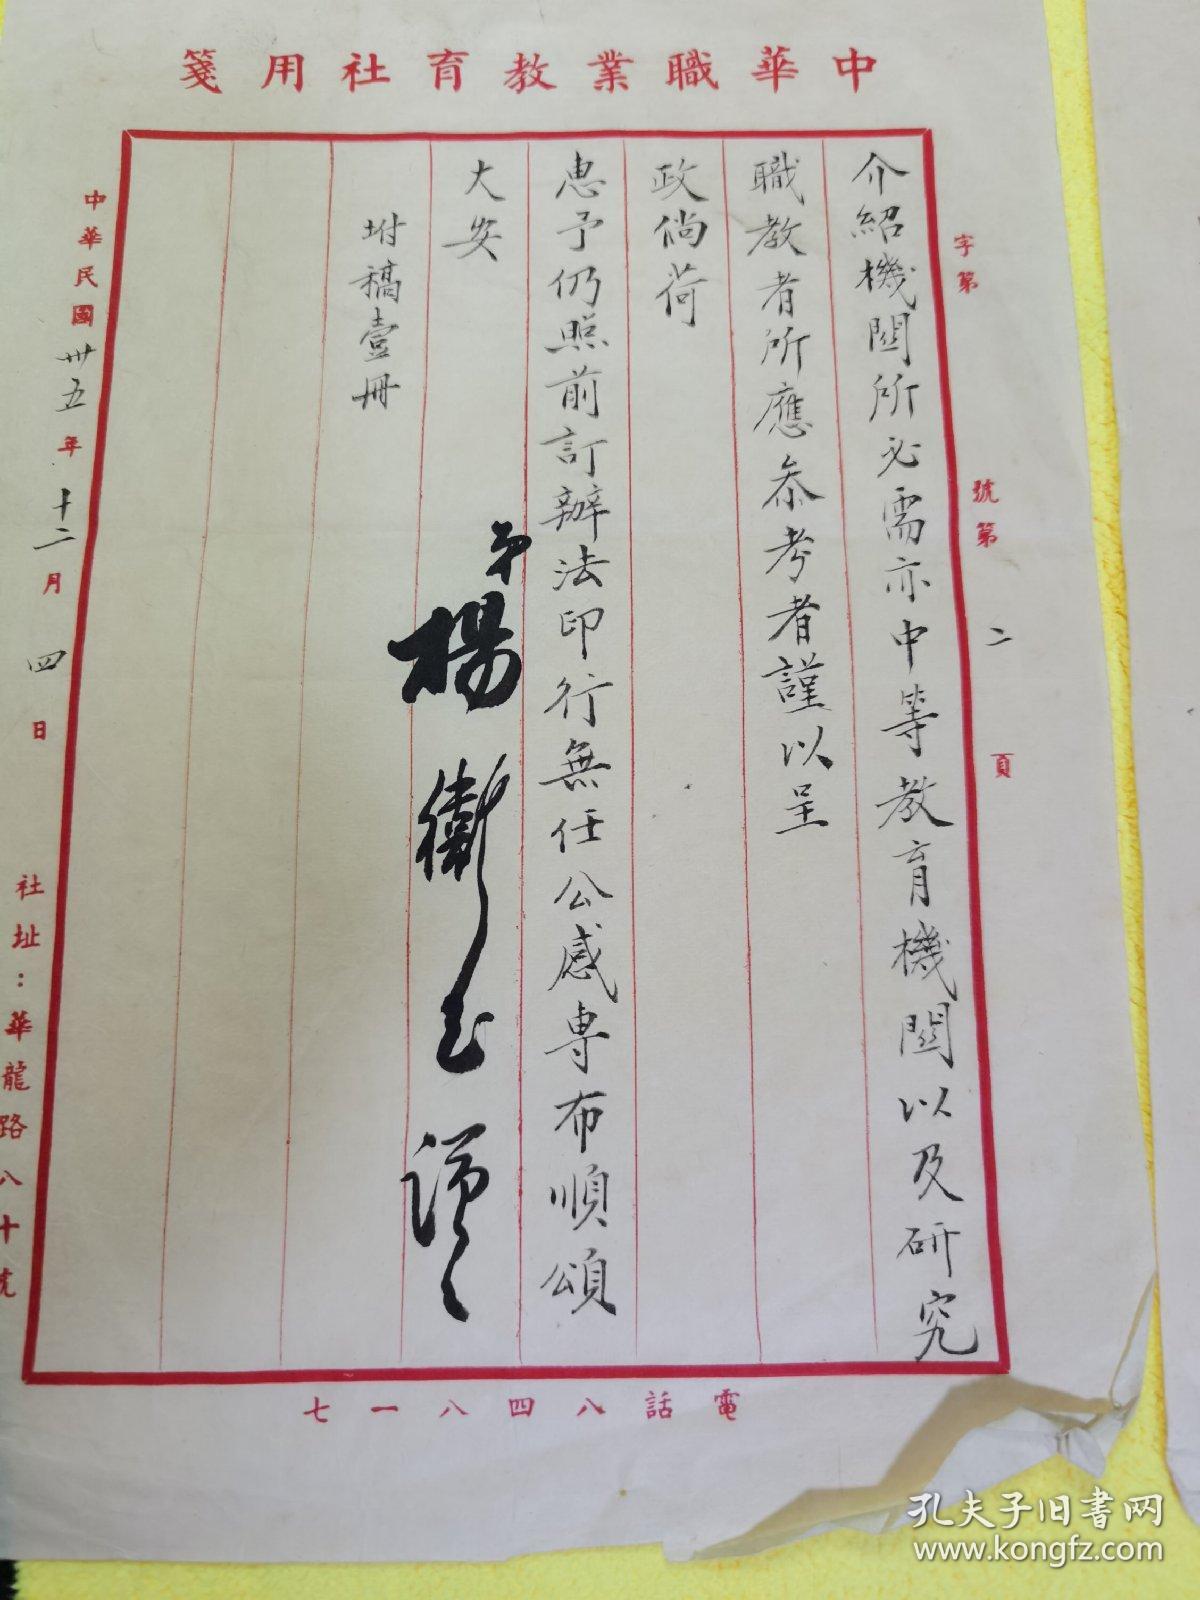 中華職業教育社用箋
字第　號第二頁
介紹機關所必需亦中等教育機關以及研究
職教者所應參考者謹以呈
政倘荷
惠予仍照前訂辦法印行無任公感專布順頌
大安
弟楊衛玉謹上
坿稿壹冊
中華民國卅五年十二月四日
社址：華龍路八十號
電話八四八一七
孔夫子旧书网
www.kongfz.com